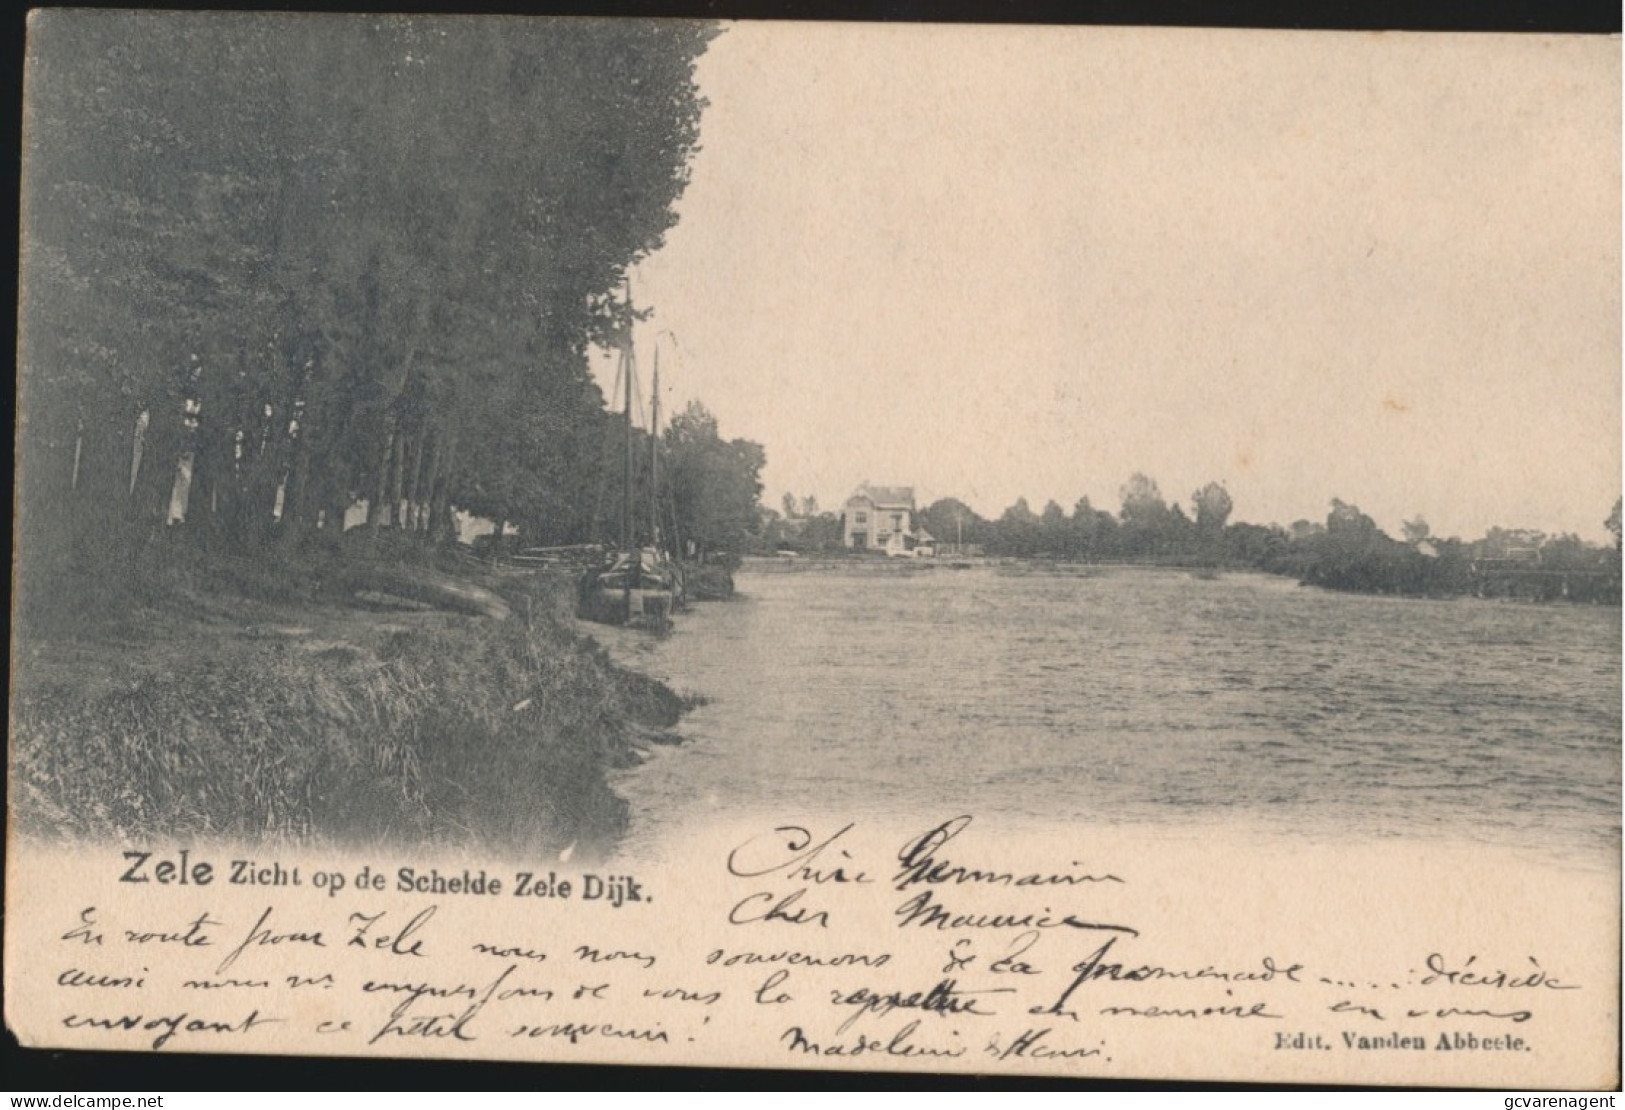 Zele Zicht op de Schelde Zele Dijk.
Chère Germaine
Cher Maurice
En route pour Zele nous nous souvenons de la promenade ..... décisive
aussi nous ns empressons de vous la remettre en memoire en vous
envoyant ce petit souvenir! Madeleine & Henri.
Edit. Vanden Abbeele.
gcvarenagent
delcampe.net